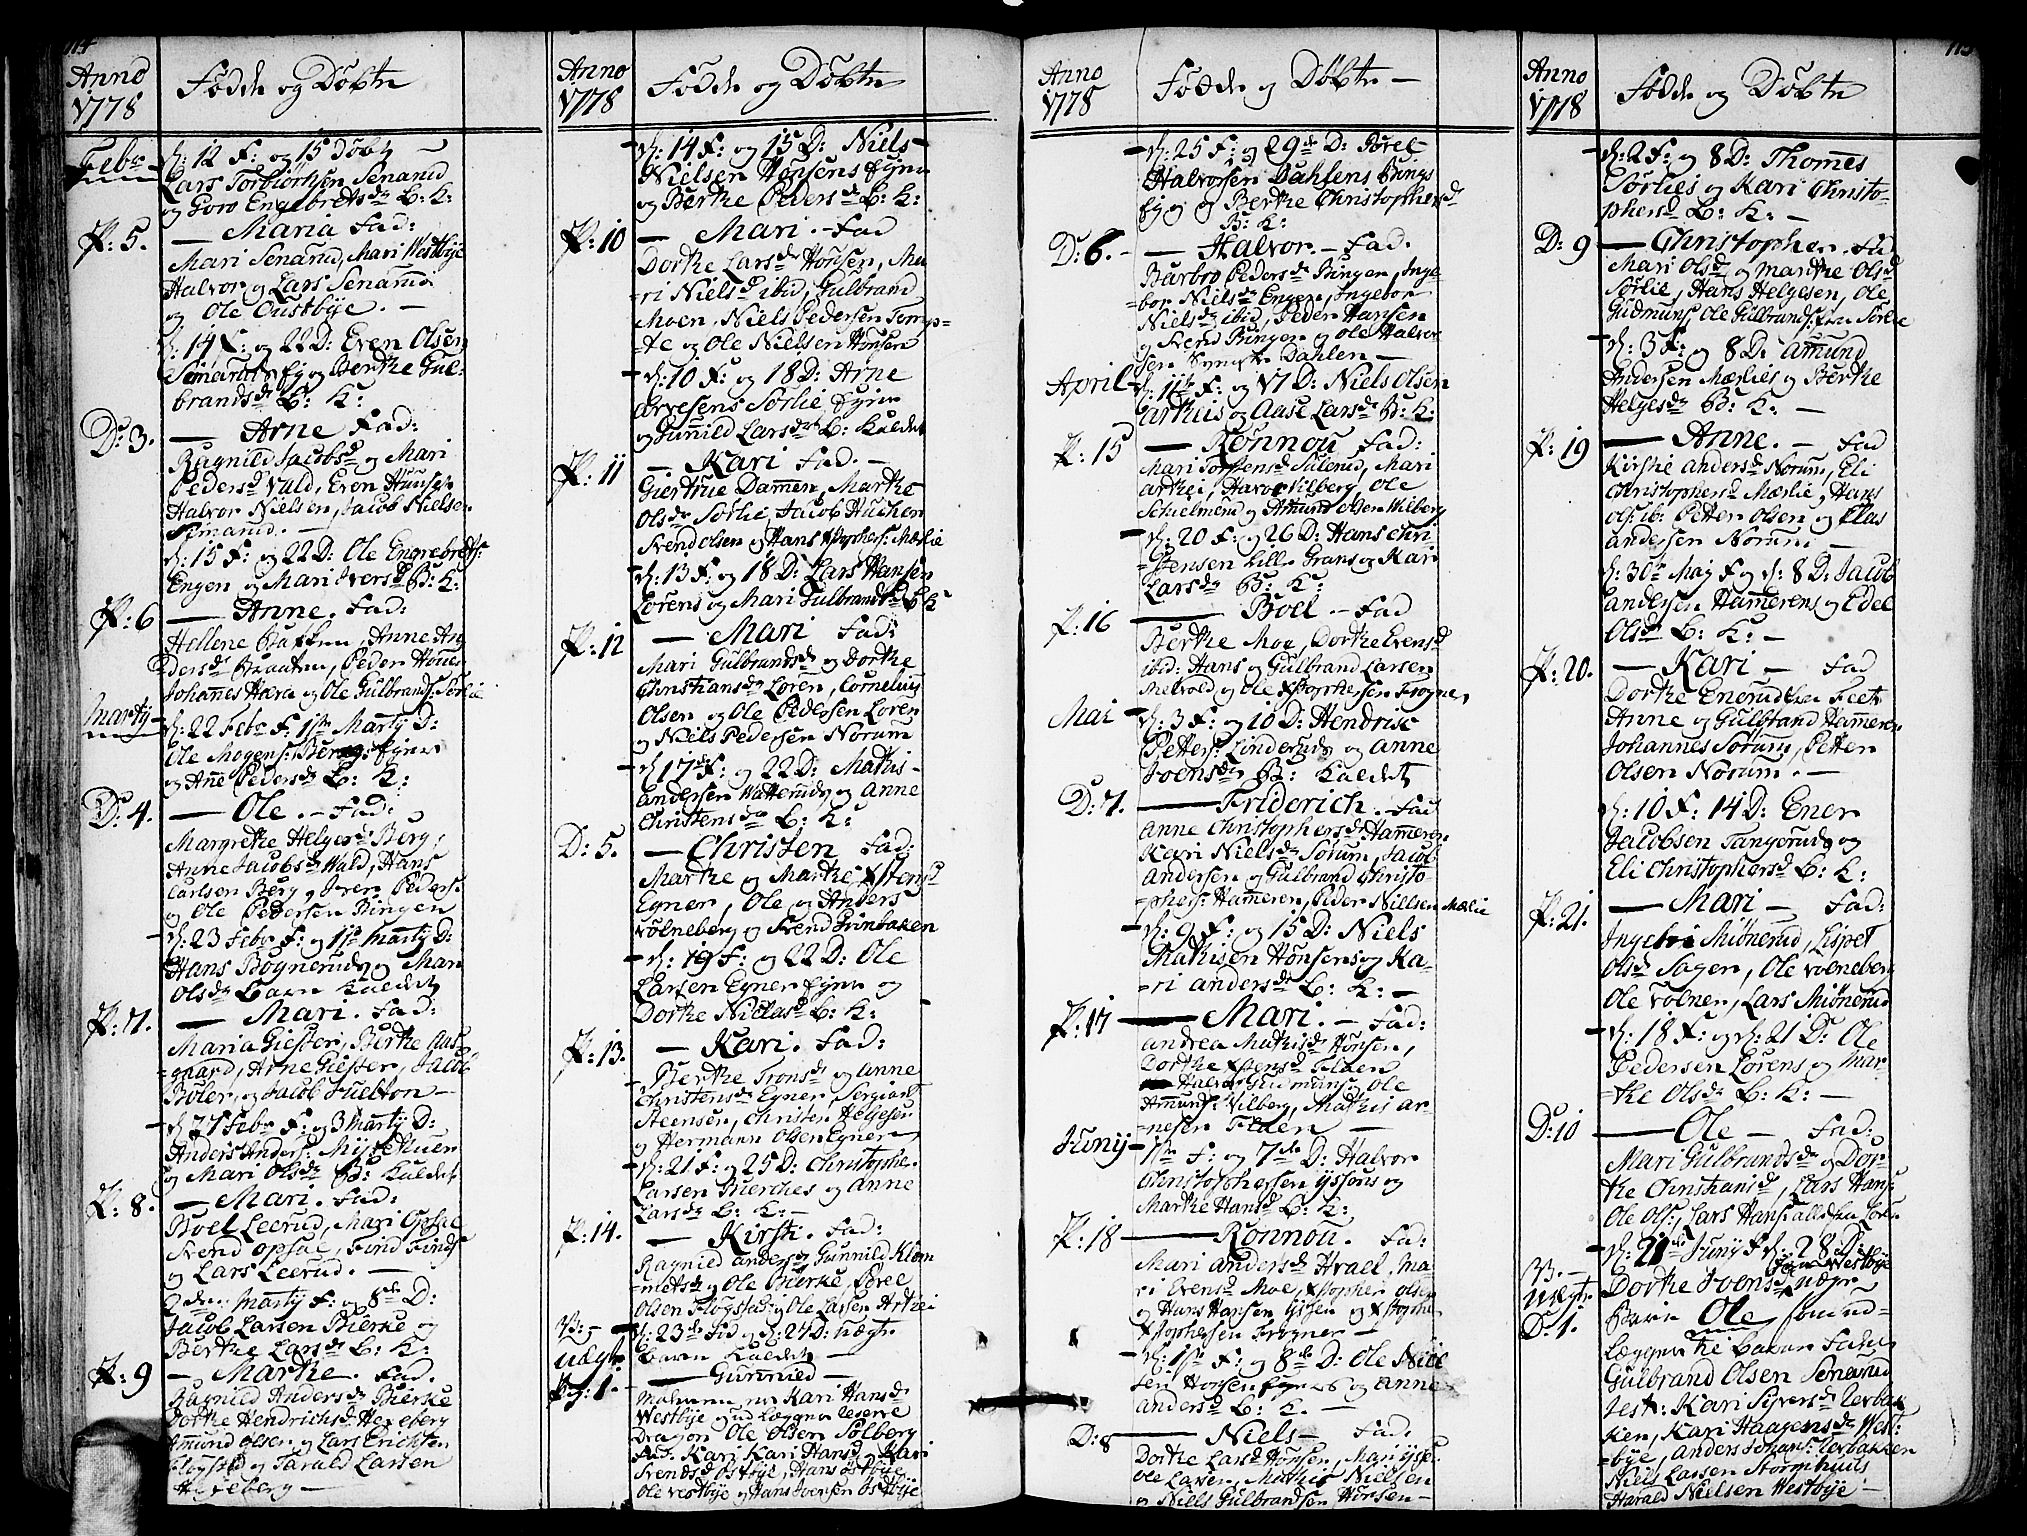 114
Anno
1778
Födde og Döbte
Febr
d: 12 F: og 15 Döbt
Lars Torbiörnsen Senarud
og Goro Engebretsdr B: K:
P: 5.
— Maria Fad:
Mari Senarud, Mari Westbÿe
Halvor og Lars Senarud
og Ole Oustbÿe. —
d: 14 F: og 22 D: Even Olsen
Senaruds og Berthe Gul-
brandsdr B: K:
D: 3.
— Arne Fad:
Ragnild Jacobsd og Mari
Pedersd Vald, Even
Halvor Nielsen, Jacob Nielsen
Senarud. —
d: 15 F: og 22 D: Ole Engebreds:
Engen og Mari Iversd B: K:
P: 6
— Anne. Fad:
Hellene Bakken, Anne An-
dersdr Braaten, Peder
Johanes og Ole Gulbrands: Sörlie
Martÿ
d: 22 Febr F: 1ste Martÿ D:
Ole Mogens: Berg
og Ane Pedersdr B: K:
D: 4.
— Ole. — Fad:
Margrethe Helgesdr Berg,
Anne Jacobsdr Wald, Hans
Carlsen Berg, Iver Peders:
og Ole Pedersen Bingen
d: 23 Febr F: og 1ste Martÿ D:
Hans Bögneruds og Mari
Olsdr Barn Kaldet
P: 7.
— Mari. Fad:
Maria Giester, Berthe Aas-
gaard, Arne Giester, Jacob
Böler, og Jacob Fuelton —
d 27 Febr F: og 3 Martÿ D:
Anders Anders:
og Mari Olsdr B: Kaldet
P: 8.
— Mari. Fad:
Boel Leerud, Mari Opsal
Svend Opsal, Find Finds:
og Lars Leerud. —
2den Martÿ F: og 8de D:
Jacob Larsen Bierke og
Berthe Larsdr B: K:
P: 9
— Marthe. Fad:
Ragnild Andersdr Bierke
Dorthe Hendrichsdr Hexeberg
Amund Olsen og Lars Erichsen
Flogstad og Tarald Larsen
Hexeberg —
Anno
1778
Födde og Döbte
d: 14 F: og 15 D: Niels
Nielsen Honsens
og Berthe Pedersdr B: K:
P: 10
— Mari. — Fad
Dorthe Larsdr Honsen, Ma-
-ri Nielsdr ibid, Gulbrand
Moen, Niels Pedersen Tomp-
-te og Ole Nielsen Honsen
d: 10 F: og 18 D: Arne
Arvesens Sörlie
og Gunnild Larsdr B: Kaldet
P: 11
— Kari Fad. —
Giertrue Dammen, Marthe
Olsdr Sörlie, Jacob
Svend Olsen og Hans Xstophers: Mærlie
d: 13 F: og 18 D: Lars Hansen
Lörens og Mari Gulbrandsdr B: K:
P: 12
— Mari Fad:
Mari Gulbrandsdr og Dorthe
Christiansdr Lören, Cornelius
Olsen og Ole Pedersen Lören
og Niels Pedersen Norum
d 17de F: og 22 D: Mathis
Andersen og Anne
Christensdr B: K:
D: 5.
— Christen Fad:
Marthe og Marthe Xstensd
Egner, Ole og Anders
Volneberg og Svend Grinbaken
d: 19 F: og 22 D: Ole
Larsen Egner og
Dorthe Niclasd B: K:
P: 13.
— Kari. Fad:
Berthe Tronsdr og Anne
Christensdr Egner, Sergiant
Steensen, Christen Helgesen
og Hermann Olsen Egner
d: 21 F: og 25 D: Christophe
Larsen Bierches og Anne
Larsdr B: K: —
P: 14.
— Kirsti. Fad:
Ragnild Andersdr Gunnild Klem-
metsdr og Ole Bierke, Poul
Olsen Flogstad og Ole Larsen
P: — d: 23de Fid og d: 24 D: uægte
uægt. Barn Kaldet —
Pig: 1. — Gunnild —
Moderen er Kari Hansdr
Westbÿe og udlægges Reserve
Dragon Ole Olsen Solberg
Fad. Kari Kari Hansd og Kari
Svendsdr Östbÿe, Hans Östbÿe
Ole Vestbÿe og Hans Ivensen Östbÿe
Anno
1778
Födde og Döbte —
d: 25 F: og 29de D: Poul
Halvorsen Dahlens Bings
og Berthe Christophersdr
B: K:
D: 6. —
— Halvor. — Fad.
Barbro Pedersdr Bingen, Inge-
bor Nielsdr Engen, Ingebor
Nielsdr ibid, Peder Hansen
og Svend Bingen og Ole Halvor
sen Dahlen —
April
d: 11te F: og 17 D: Niels Olsen
Arthuis og Aase Larsdr B: K:
P: 15
— Rönnou Fad:
Mari Torstensdr Sulerud, Mari
Arthei, Havor Vilberg, Ole
Schielmerud og Amund Olsen Wilberg
d: 20 F: og 26 D: Hans Chri
stensen Lille Frans og Kari
Larsdr B: K:
P: 16
— Boel — Fad
Berthe Moe, Dorthe Evensd
ibid: Hans og Gulbrand Larsen
Melvold og Ole Xstophersen Frogner
Mai
d: 3 F: og 10 D: Hendrik
Petters: Linderuds og Anne
Ivensdr B: Kaldet
D: 7.
— Friderich. Fad
Anne Christophersdr Hameren
Kari Nielsdr Sörum, Jacob
Andersen og Gulbrand Christo-
-phers: Hameren, Peder Nielsen Mælie
d: 9 F: og 15 D: Niels
Mathisen Honsens og Ka-
-ri Andersdr B: K: —
P: 17
— Mari. — Fad:
Andrea Mathisdr Honsen,
Dorthe Xstensdr Felden
Halvor Gudmuns og Ole
Amunds: Vilberg, Mathis Ar-
nesen Felden —
Junÿ
1ste F: og 7de D: Halvor
Christophersen Ijssons og
Marthe Hansd B: K:
P: 18
— Rönnou. Fad:
Mari Andersdr Hrael, Ma-
ri Evensd Moe, Xstopher Olsen
og Hans Hansen Gissen og Xstophe
Xstophersen Frogner —
d: 1ste F: og 8de D: Ole Niel
sen Honsen og Anne
Andersd B: K. —
D: 8
— Niels — Fad:
Dorthe Larsdr Honsen, Mari
Ole Larsen, Mathis Nielsen
og Niels Gulbrandsen Honsen —
115
Anno
1778
Födde og Döbte
d: 2 F: og 8 D: Thomes
Sörlies og Kari Christo-
phersd B: K: —
D: 9
— Christopher. Fad
Mari Olsdr og Marthe Olsd
Sörlie, Hans Helgesen, Ole
Gudmuns Ole Gulbrands: fra Sörlie
d: 3 F: og 8 D: Amund
Andersen Mærlies og Berthe
Helgesdr B: K: —
P: 19
— Anne. — Fad
Kirstie Andersd Norum, Eli
Christophersd Mærlie, Hans
Ols: ib: Petter Olsen og Elas
Andersen Norum —
d: 30te Maj F og d: 8 D: Jacob
Andersen Hammerens og Edel
Olsdr B: K: —
P: 20.
— Kari — Fad
Dorthe Enerud fra Feet
Anne og Gulbrand Hameren
Johannes Sörum, Petter
Olsen Norum. —
d: 10 F: 14 D: Ener
Jacobsen Tangeruds og
Eli Christophersd B: K:
P: 21.
— Mari — Fad:
Ingebor Miönerud, Lispet
Olsd Sagen, Ole Volneberg
Ole Volner, Lars Miönerud
d: 18 F: og d: 21 D: Ole
Pedersen Lörens og Mar-
the Olsdr B: K: —
D: 10
— Ole — Fad:
Mari Gulbrandsdr og Dor-
the Christiansd, Lars Hans:
Ole Ols:, Lars Hans: alle fra Lören
d: 21de Junÿ F d: 28 D:
P. —
uægt.
D: 1.
fra Westbÿe
Dorthe Ivensd uægte
Barn Ole
lægges til Barn Fader
Gulbrand Olsen Senarud
test: Kari Siversdr Lerbak
ken, Kari Haagensdr West-
-bÿe, Anders Johans: Lerbakken
Niels Larsen Stormhuus
Harald Nielsen Westbÿe —